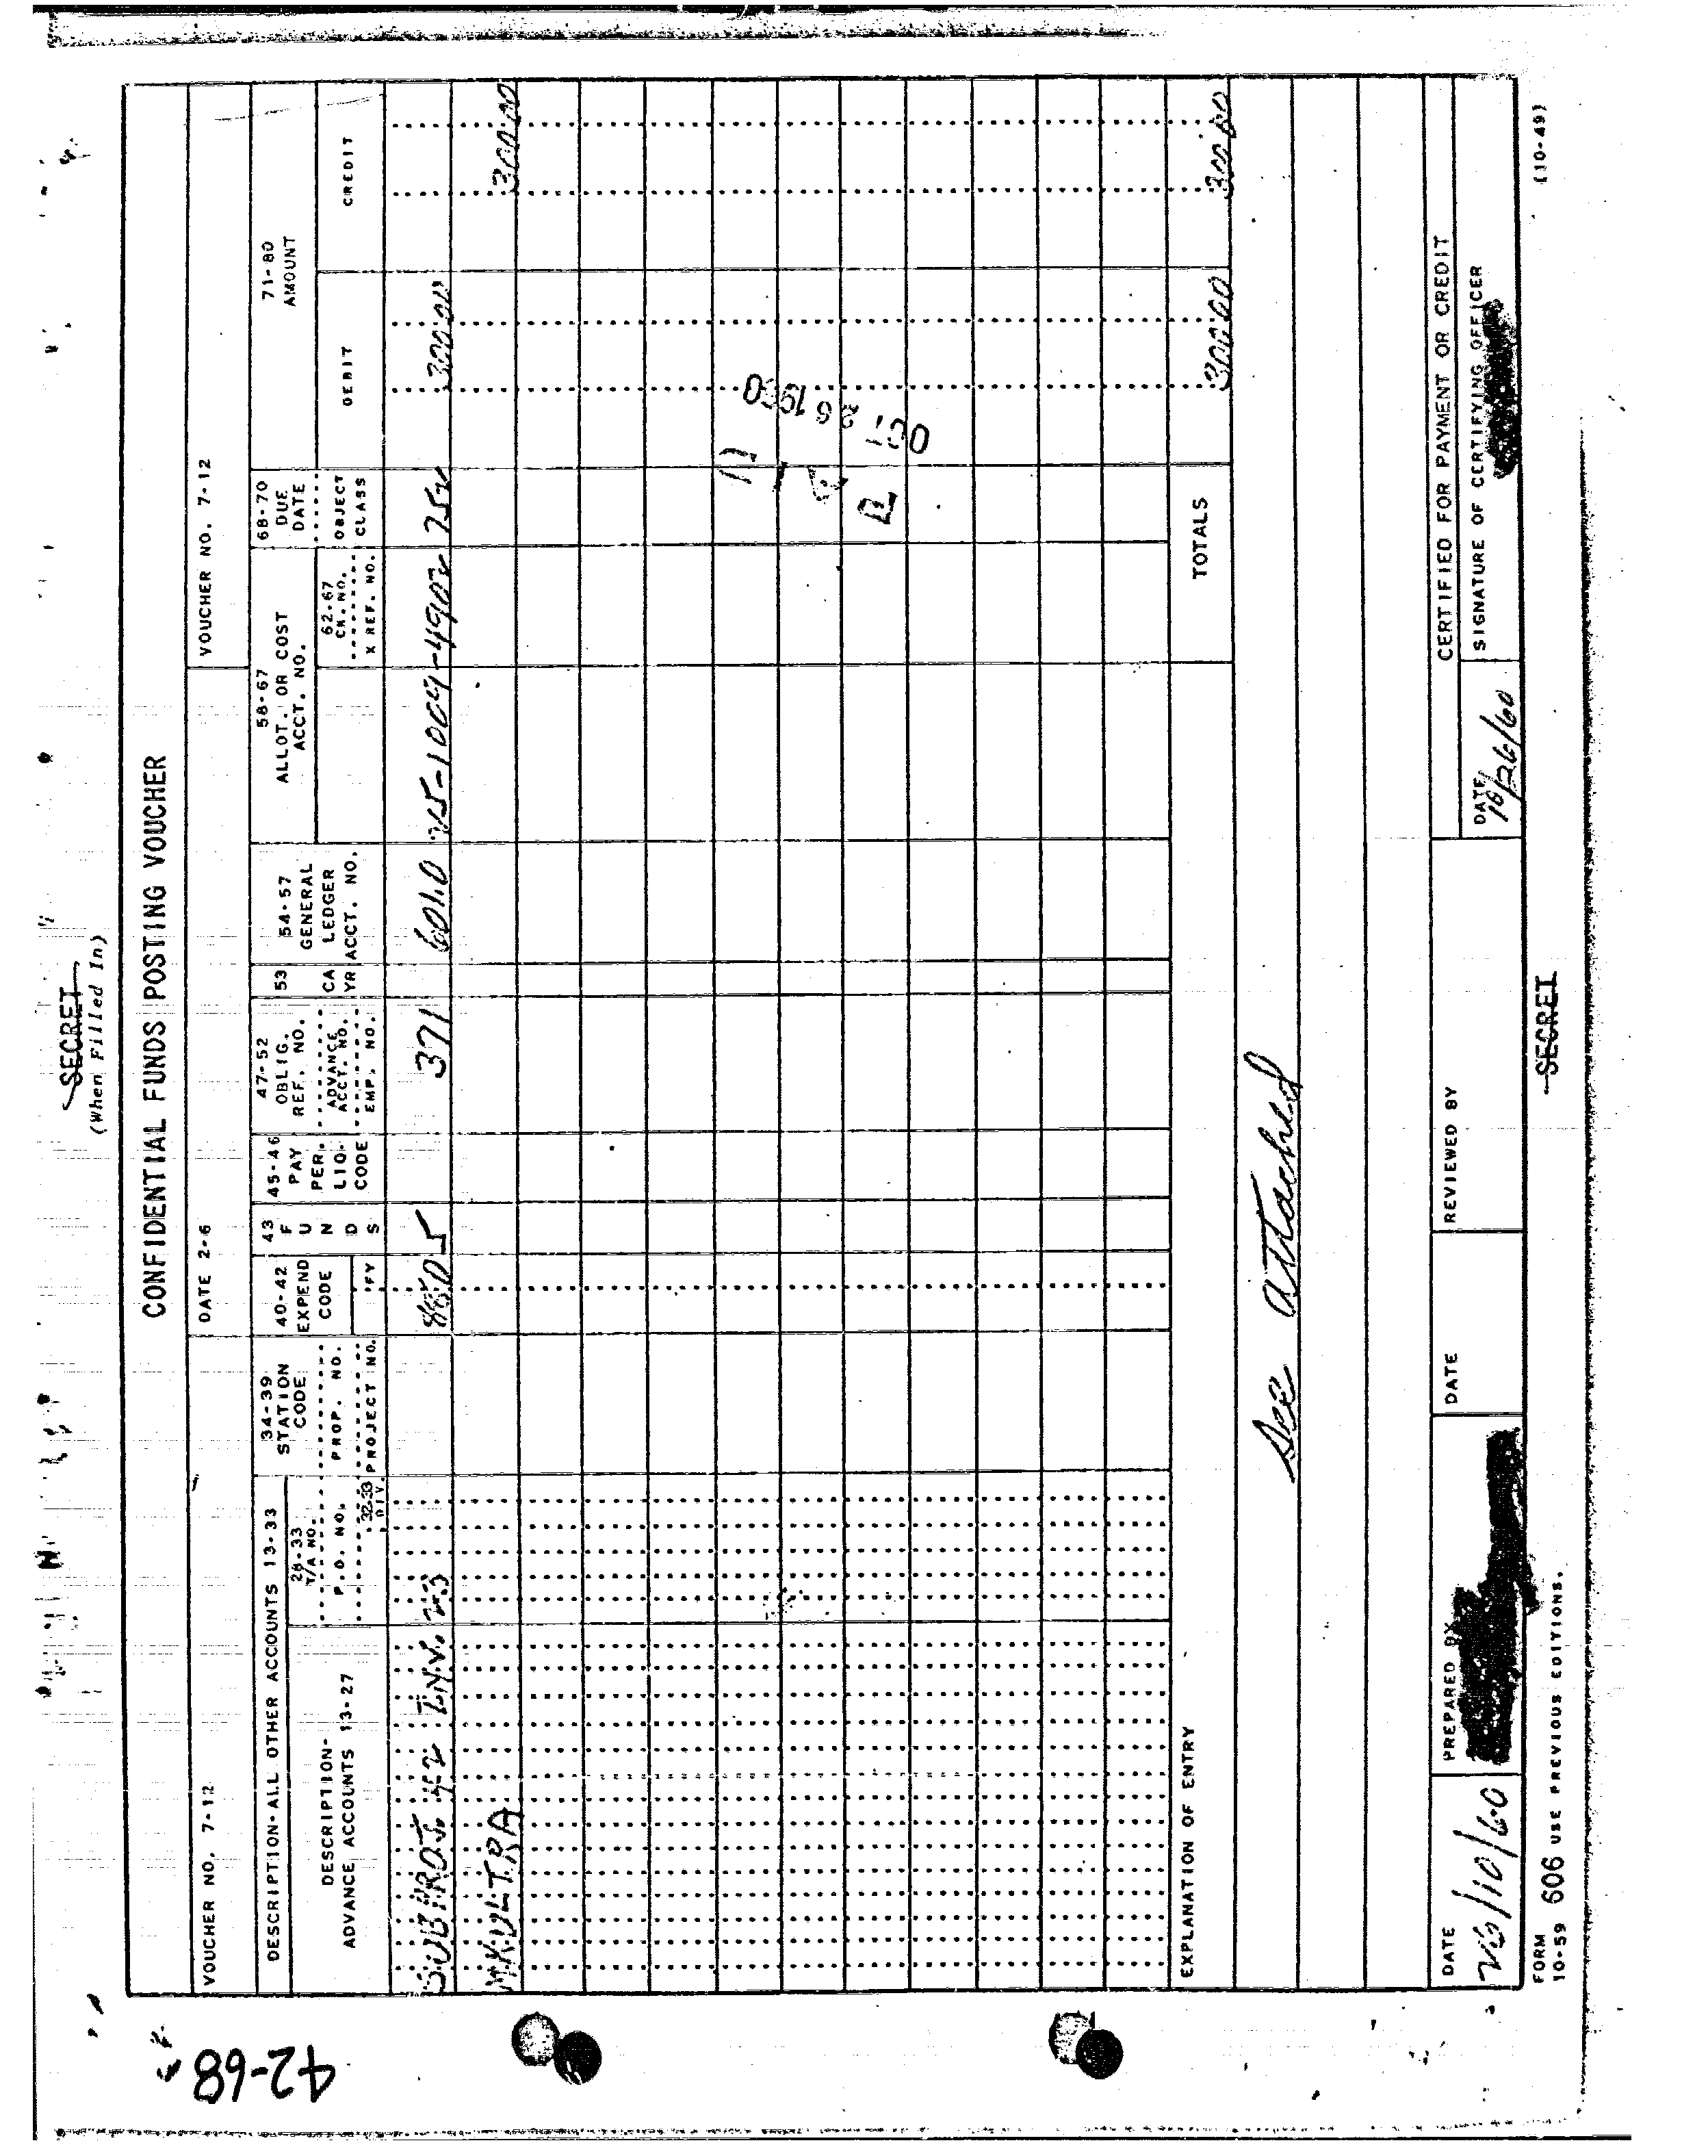 SECRET
(When Filled In)
CONFIDENTIAL FUNDS POSTING VOUCHER
VOUCHER NO. 7-12 DATE 2-6 VOUCHER NO. 7-12
DESCRIPTION-ALL OTHER ACCOUNTS 13-33
DESCRIPTION-
ADVANCE ACCOUNTS 13-27
28-33
T/A NO.
P.O. NO.
32-33
DIV.
34-39
STATION
CODE
PROP. NO.
PROJECT NO.
40-42
EXPEND
CODE
FY
43
F
U
N
D
S
45-46
PAY
PER.
LIQ.
CODE
47-52
OBLIG.
REF. NO.
ADVANCE
ACCT. NO.
EMP. NO.
53
CA
YR
54-57
GENERAL
LEDGER
ACCT. NO.
58-67
ALLOT. OR COST
ACCT. NO.
62-67
CK. NO.
X REF. NO.
68-70
DUE
DATE
OBJECT
CLASS
71-80
AMOUNT
DEBIT
CREDIT
SUBPROJ. 42 INV. 23 371 601.0 300.00
MKULTRA 300.00
PAID
OCT 26 1960
TOTALS 300.00 300.00
EXPLANATION OF ENTRY
See attached
DATE PREPARED BY DATE REVIEWED BY
CERTIFIED FOR PAYMENT OR CREDIT
DATE SIGNATURE OF CERTIFYING OFFICER
10/26/60
FORM
10-59 606 USE PREVIOUS EDITIONS.
SECRET
(10-49)
42-68